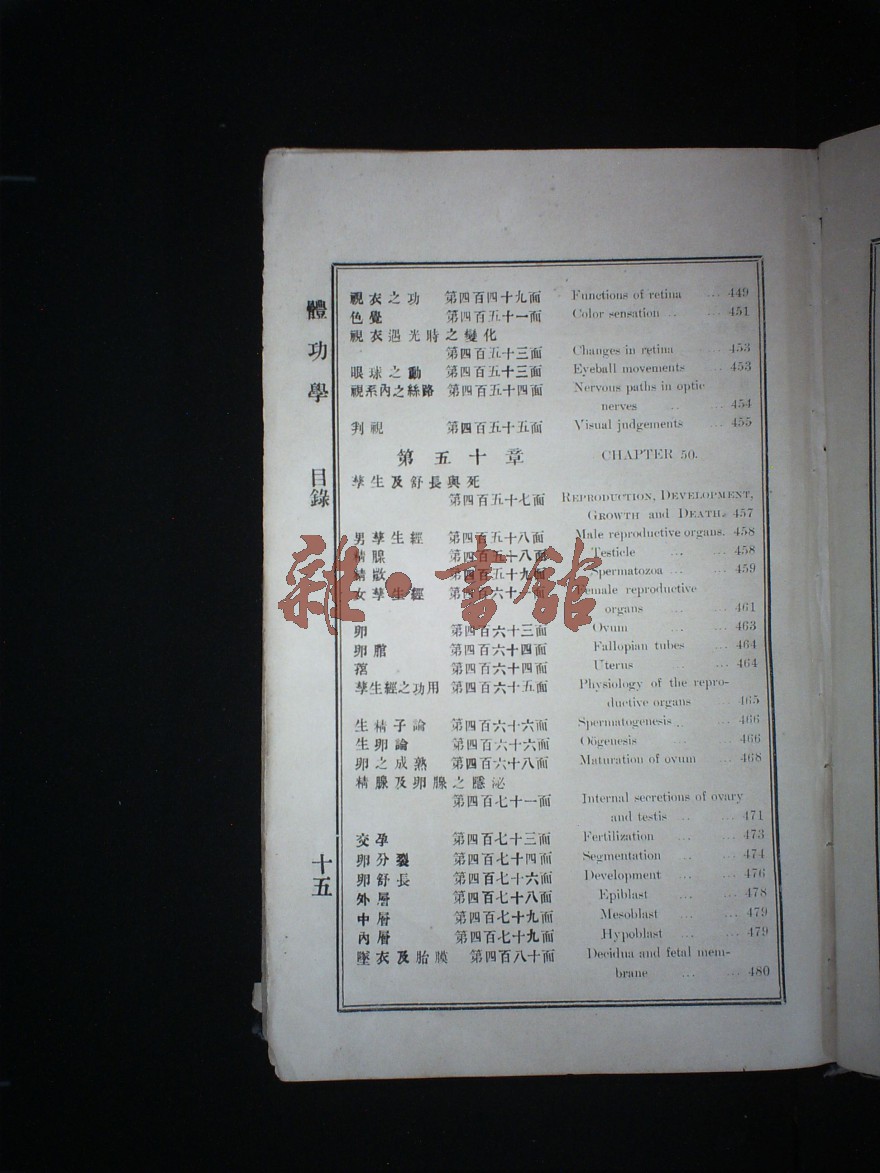 體功學 目錄 十五
視衣之功 第四百四十九面 Functions of retina ... 449
色覺 第四百五十一面 Color sensation .. ... 451
視衣遇光時之變化
第四百五十三面 Changes in retina ... 453
眼球之動 第四百五十三面 Eyeball movements .. 453
視系內之絲路 第四百五十四面 Nervous paths in optic
nerves ... ... 454
判視 第四百五十五面 Visual judgements ... 455
第五十章 CHAPTER 50.
孳生及舒長與死
第四百五十七面 REPRODUCTION, DEVELOPMENT,
GROWTH and DEATH. 457
男孳生經 第四百五十八面 Male reproductive organs. 458
精腺 第四百五十八面 Testicle ... ... 458
第四百五十九面 Spermatozoa ... ... 459
女孳生經 第四百六十一面 Female reproductive
organs ... ... 461
卵 第四百六十三面 Ovum ... ... 463
卵䏧 第四百六十四面 Fallopian tubes ... 464
第四百六十四面 Uterus ... ... 464
孳生經之功用 第四百六十五面 Physiology of the repro-
ductive organs ... 465
生精子論 第四百六十六面 Spermatogenesis .. ... 466
生卵論 第四百六十六面 Oögenesis ... ... 466
卵之成熟 第四百六十八面 Maturation of ovum ... 468
精腺及卵腺之隱泌
第四百七十一面 Internal secretions of ovary
and testis ... ... 471
交孕 第四百七十三面 Fertilization ... ... 473
卵分裂 第四百七十四面 Segmentation ... ... 474
卵舒長 第四百七十六面 Development ... ... 476
外層 第四百七十八面 Epiblast ... ... 478
中層 第四百七十九面 Mesoblast ... ... 479
內層 第四百七十九面 Hypoblast ... ... 479
墜衣及胎膜 第四百八十面 Decidua and fetal mem-
brane ... ... 480
雜·書館